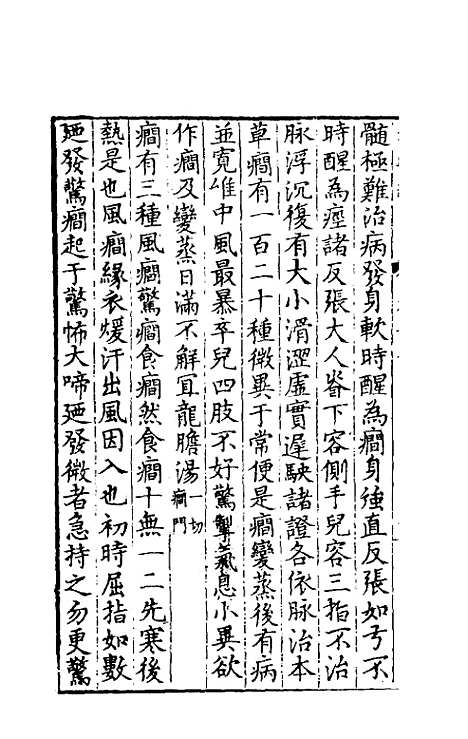 髓極難治病發身軟時醒為癎身強直反張如弓不
時醒為痙諸反張大人脊下容側手兒容三指不治
脉浮沉復有大小滑澀虛實遲駛諸證各依脉治本
草癎有一百二十種微異于常便是癎變蒸後有病
並寛唯中風最暴卒兒四肢不好驚掣氣息小異欲
作癎及變蒸日滿不解宜龍膽湯一切癎門
癎有三種風癎驚癎食癎然食癎十無一二先寒後
熱是也風癎緣衣煖汗出風因入也初時屈指如數
廼發驚癎起于驚怖大啼廼發微者急持之勿更驚